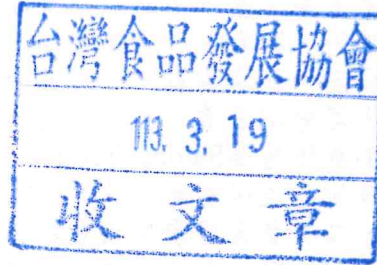 台灣食品發展協會
113. 3. 19
收文章